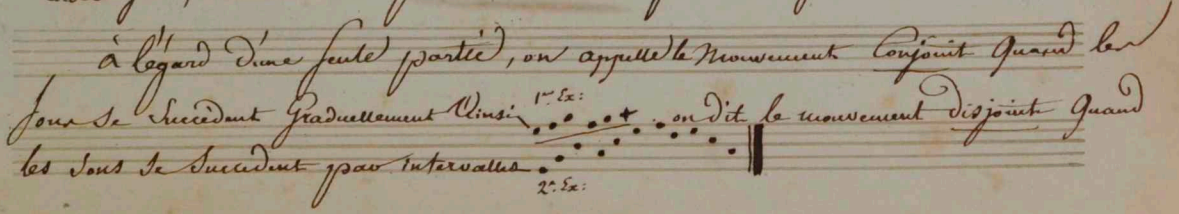 à légard d'une seule partie, on appelle le mouvement Conjoint Quand les
sons se succèdent Graduellement Ainsi 1er Ex: on dit le mouvement disjoint Quand
les sons se succèdent par intervalles
2e Ex: